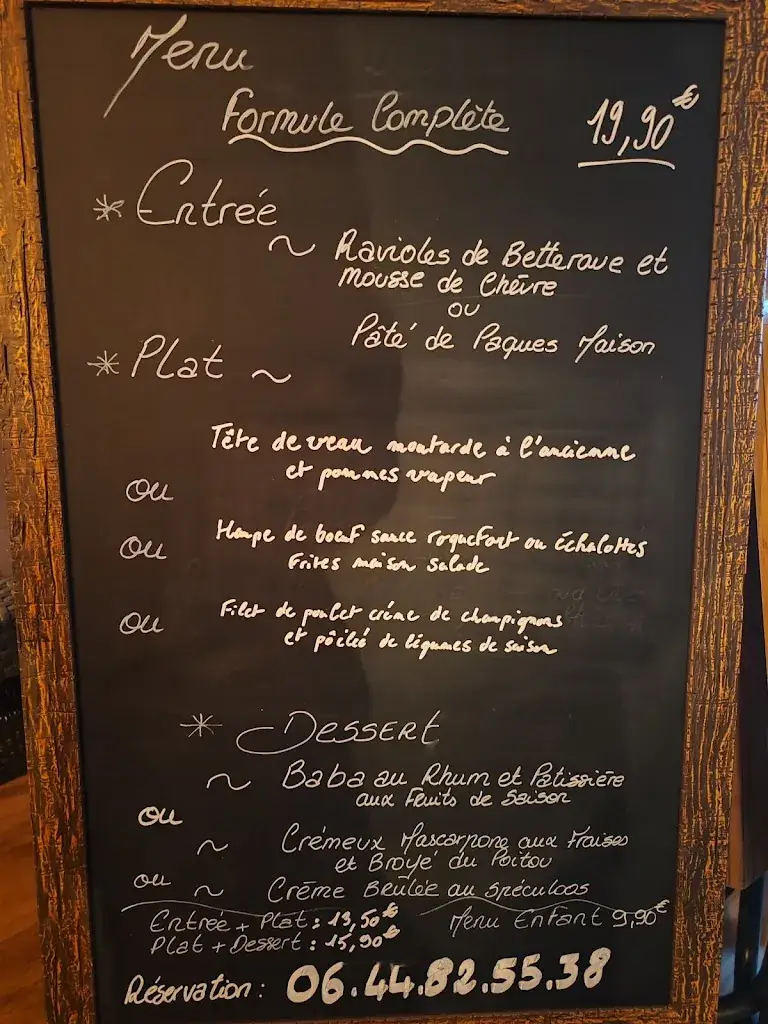 Menu
Formule Complète 19,90€
* Entrée
~ Ravioles de Betterave et
Mousse de Chèvre
ou
Pâté de Paques Maison
* Plat ~
Tête de veau moutarde à l'ancienne
et pommes vapeur
ou
Hampe de boeuf sauce roquefort ou échalottes
ou
frites maison salade
Filet de poulet crème de champignons
ou
et pôêlé de légumes de saison
* Dessert
~ Baba au Rhum et Patissière
aux Fruits de Saison
ou
~ Crémeux Mascarpone aux Fraises
et Broyé du Poitou
ou ~ Crême Brûlée au Spéculoos
Entrée + Plat : 13,50€ Menu Enfant 9,90€
Plat + Dessert : 15,90€
Réservation : 06.44.82.55.38